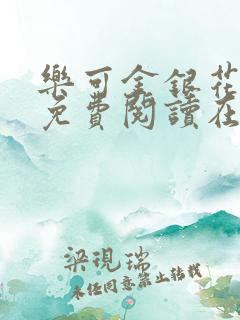 樂可金銀花
免費閱讀在
梁現瑞
未經同意禁止轉載